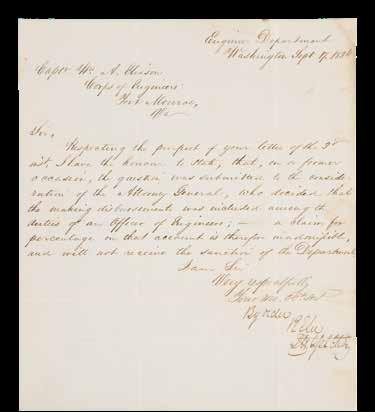 Engineer Department
Washington Sept. 17, 18
Capt. Wm. A. Eliason
Corps of Engineers
Fort Monroe,
Va
Sir,
Respecting the purport of your letter of the 3d
inst. I have the honour to state, that, on a former
occasion, the question was submitted to the conside-
ration of the Attorney General, who decided that
the making disbursements was included among the
duties of an Officer of Engineers; — a claim for
percentage on that account is therefor inadmissible,
and will not receive the sanction of the Department.
I am Sir
Very respectfully
Your
By order
R E Lee